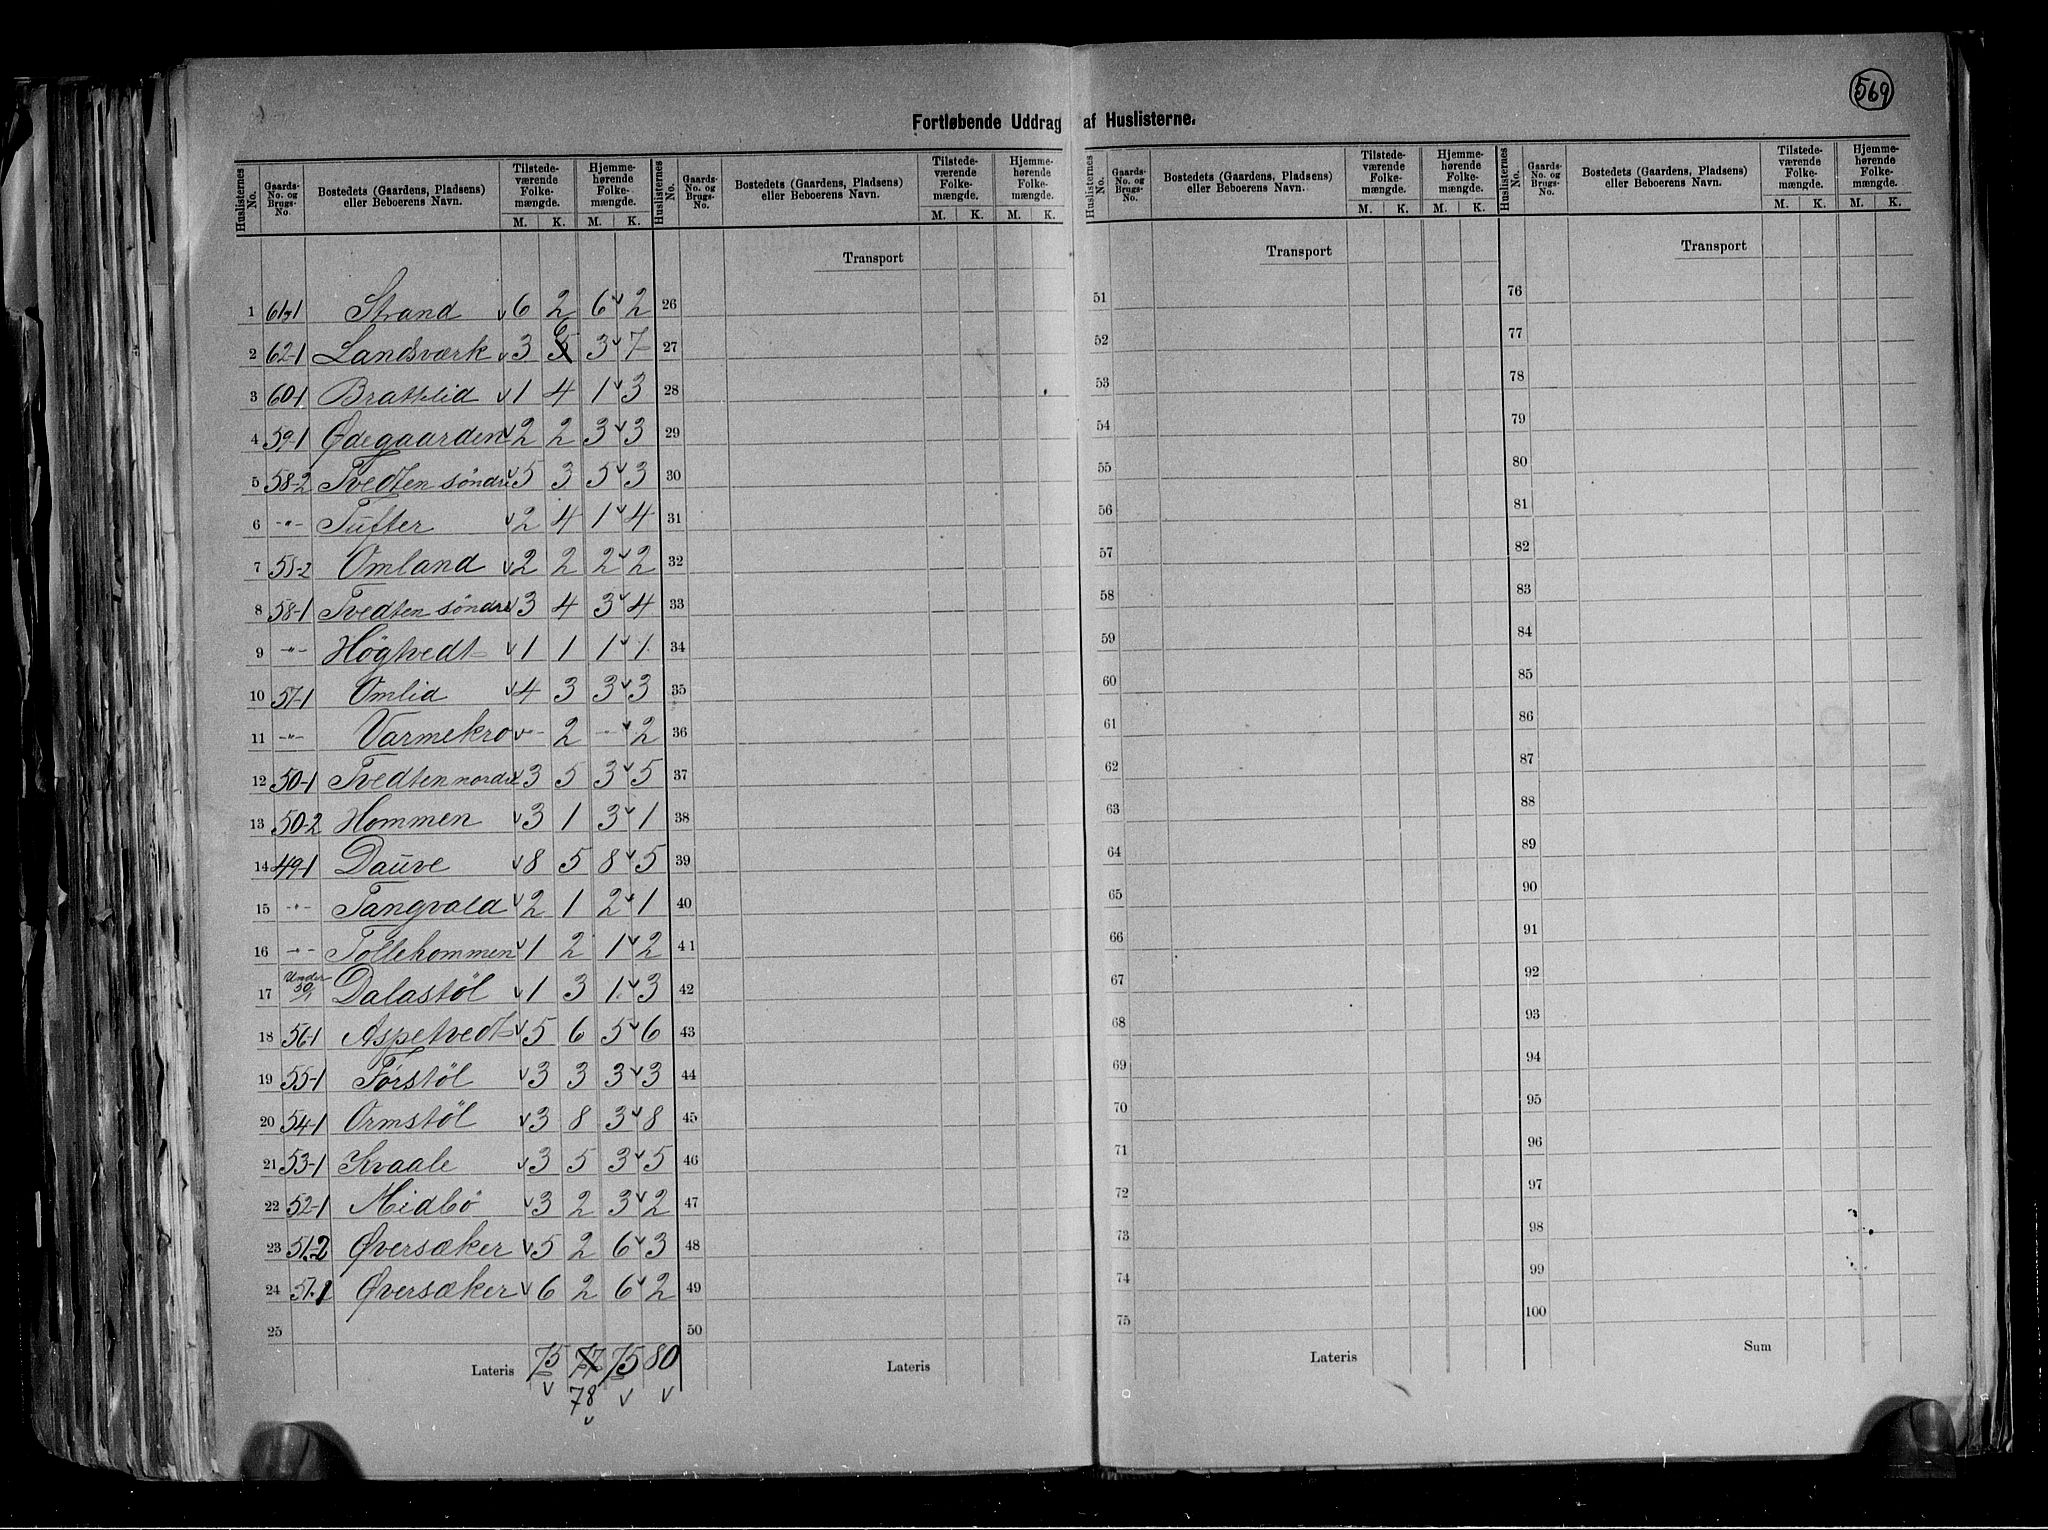 569
Fortløbende Uddrag af Huslisterne.
Huslisternes No. Gaards-No. og Brugs-No. Bostedets (Gaardens, Pladsens) eller Beboerens Navn. Tilstedeværende Folkemængde. M. K. Hjemmehørende Folkemængde. M. K.
Huslisternes No. Gaards-No. og Brugs-No. Bostedets (Gaardens, Pladsens) eller Beboerens Navn. Tilstedeværende Folkemængde. M. K. Hjemmehørende Folkemængde. M. K.
Huslisternes No. Gaards-No. og Brugs-No. Bostedets (Gaardens, Pladsens) eller Beboerens Navn. Tilstedeværende Folkemængde. M. K. Hjemmehørende Folkemængde. M. K.
Huslisternes No. Gaards-No. og Brugs-No. Bostedets (Gaardens, Pladsens) eller Beboerens Navn. Tilstedeværende Folkemængde. M. K. Hjemmehørende Folkemængde. M. K.
Transport Transport Transport
1 61-1 Strand 6 2 6 2 26 51 76
2 62-1 Landsværk 3 6 3 7 27 52 77
3 60-1 Brattelid 1 4 1 3 28 53 78
4 59-1 Ødegaarden 2 2 3 3 29 54 79
5 58-2 Tvedten söndre 5 3 5 3 30 55 80
6 -"- Tufter 2 4 1 4 31 56 81
7 58-2 Omland 2 2 2 2 32 57 82
8 58-1 Tvedten söndre 3 4 3 4 33 58 83
9 -"- Högtvedt 1 1 1 1 34 59 84
10 57-1 Omlid 4 3 3 3 35 60 85
11 -"- Varmekro - 2 - 2 36 61 86
12 50-1 Tvedten nordre 3 5 3 5 37 62 87
13 50-2 Hommen 3 1 3 1 38 63 88
14 49-1 Dauve 8 5 8 5 39 64 89
15 -"- Tangvald 2 1 2 1 40 65 90
16 -"- Tollehommen 1 2 1 2 41 66 91
17 Under 50/1 Dalastöl 1 3 1 3 42 67 92
18 56-1 Aspetvedt 5 6 5 6 43 68 93
19 55-1 Førstöl 3 3 3 3 44 69 94
20 54-1 Ormstöl 3 8 3 8 45 70 95
21 53-1 Kvaale 3 5 3 5 46 71 96
22 52-1 Midbö 3 2 3 2 47 72 97
23 51-2 Øversæker 5 2 6 3 48 73 98
24 51-1 Øversæker 6 2 6 2 49 74 99
25 50 75 100
Lateris 75 77 75 80 Lateris Lateris Sum
78